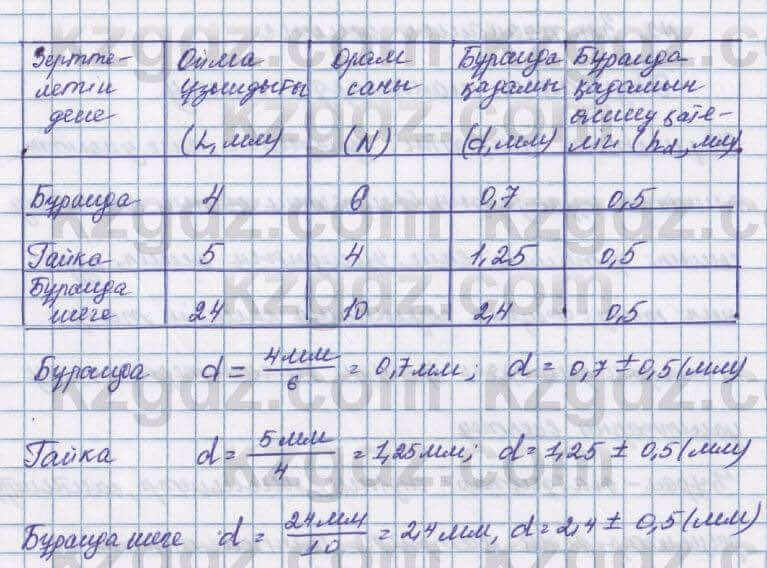 Зерттe- Ойма Орам Бұранда Бұранда
летін ұзындығы саны қадамы қадамын
дене өлшеу қате-
(L, мм) (N) (d, мм) лігі (hd, мм)
Бұранда 4 6 0,7 0,5
Гайка 5 4 1,25 0,5
Бұранда
шеге 24 10 2,4 0,5
Бұранда d = 4мм/6 = 0,7мм; d = 0,7 ± 0,5(мм)
Гайка d = 5мм/4 = 1,25мм; d = 1,25 ± 0,5(мм)
Бұранда шеге d = 24мм/10 = 2,4мм, d = 2,4 ± 0,5(мм)